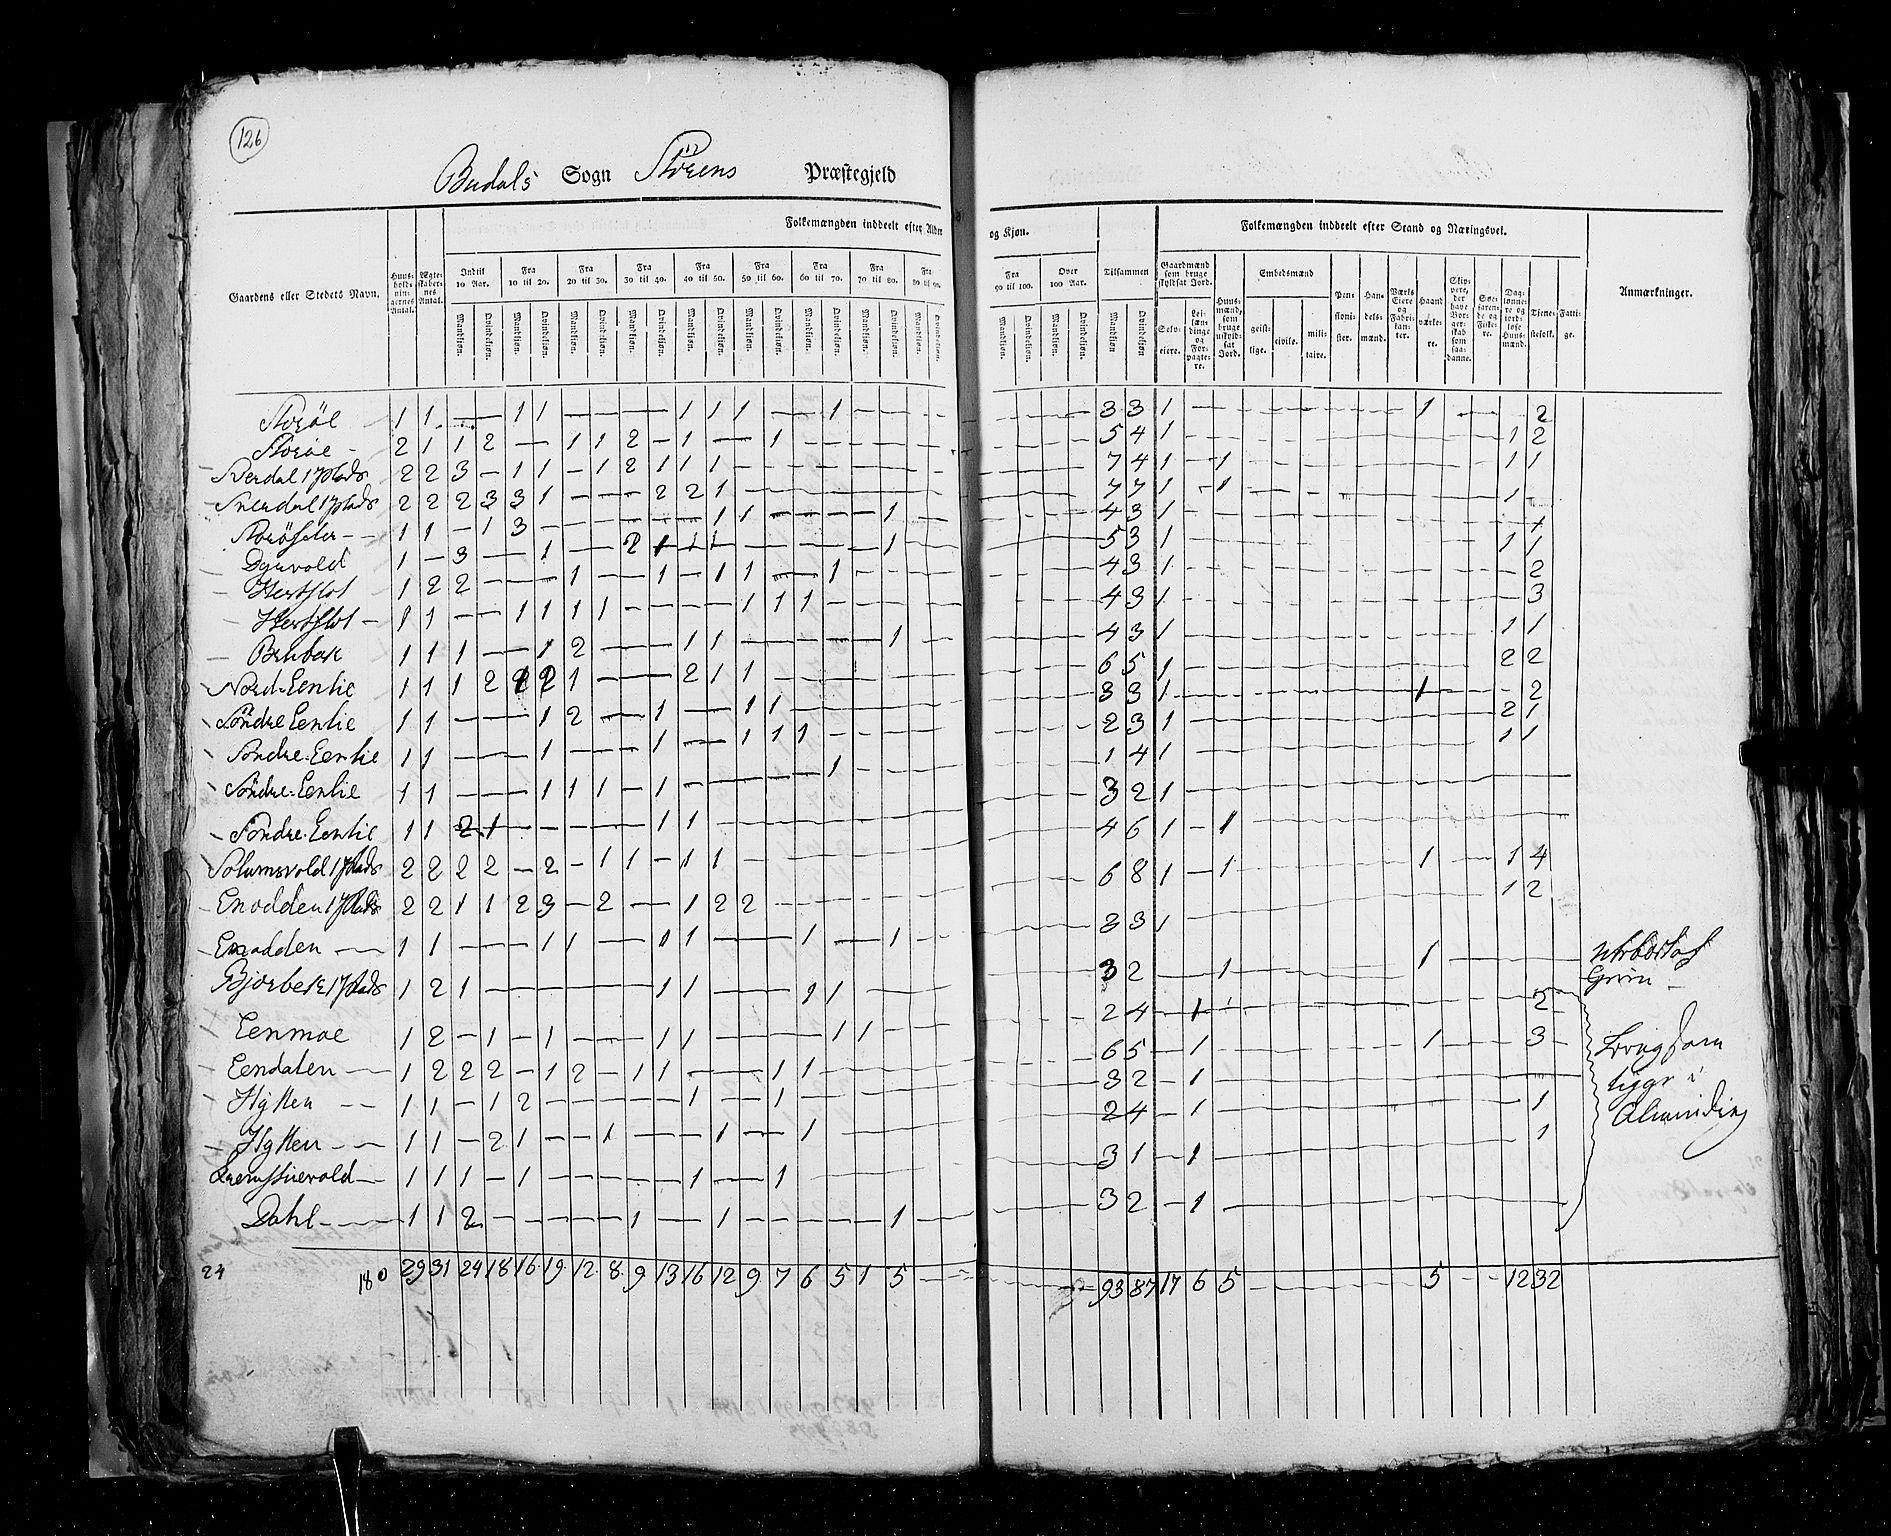 126
Budals Sogn Störens Præstegjeld
Folkemængden inddeelt efter Alder og Kjøn. Folkemængden inddeelt efter Stand og Næringsvei.
Gaardens eller Stedets Navn. Huus-holdningernes Antal. Ægteskabernes Antal. Indtil 10 Aar. Fra 10 til 20. Fra 20 til 30. Fra 30 til 40. Fra 40 til 50. Fra 50 til 60. Fra 60 til 70. Fra 70 til 80. Fra 80 til 90. Fra 90 til 100. Over 100 Aar. Tilsammen Gaardmænd som bruge skyldsat Jord. Huusmænd, som bruge uskyldsat Jord. Embedsmænd Pensionister. Handelsmænd. Værks Eiere og Fabrikanter. Haandværkere. Skippere, der have Borgerskab som saadanne. Søefarende og Fiskere. Daglønnere og jordløse Huusmænd. Tjenestefolk. Fattige. Anmærkninger.
Mandkjøn. Qvindekjøn. Selveiere. Leilændinge og Forpagtere. geistlige. civile. militaire.
Storöe 1 1 — 1 1 — 1 1 1 — 1 — 3 3 1 — 1 — 2
Storöe 2 1 1 2 — 1 1 2 — 1 — 1 — 5 4 1 — 1 2
2 2 3 — 1 1 — 1 2 1 1 1 — 7 4 1 — 1 — 1 1
2 2 2 3 3 1 — 2 2 1 — 7 7 1 — 1 — 1
1 1 — 1 3 — 1 1 — 1 — 4 3 1 — 1
1 — 3 — 1 — 2 1 1 1 — 1 — 5 3 1 — 1 1
1 2 2 — 1 — 1 — 1 1 — 1 — 4 3 1 — 2
1 1 — 1 1 1 1 — 1 1 1 — 4 3 1 — 3
1 1 1 — 1 2 — 1 1 — 1 — 4 3 1 — 1 1
Nord-Eenlie 1 1 1 2 2 2 1 — 2 1 1 — 6 5 1 — 2 2
Söndre Eenlie 1 1 — 1 2 — 1 — 1 1 — 3 3 1 — 1 — 2
Söndre-Eenlie 1 1 — 1 — 1 — 1 1 1 — 2 3 1 — 2 1
Söndre-Eenlie 1 1 — 1 1 1 — 1 — 1 — 1 4 1 — 1 1
Söndre-Eenlie 1 1 2 1 — 1 1 — 3 2 1 —
Solumsvold 1 Plads 2 2 2 2 — 2 — 1 1 — 1 1 — 4 6 1 — 1 —
Enodden 1 Plads 2 2 1 1 2 3 — 2 — 1 2 2 — 6 8 1 — 1 — 1 — 1 4
Enodden 1 1 — 1 1 — 1 1 — 1 — 1 — 3 3 1 — 1 2
Bjørbek 1 Plads 1 2 1 — 1 1 — 1 1 — 3 2 — 1 — 1
Eenmoe 1 2 — 1 — 1 — 1 1 — 1 1 — 2 4 — 1 — 2
Eendalen 1 2 2 2 — 1 2 — 1 1 — 1 1 — 6 5 — 1 — 1 — 3
Hytten 1 1 — 1 2 — 1 — 1 — 3 2 — 1 —
Hytten 1 1 — 2 1 — 1 — 1 — 1 — 2 4 — 1 — 1
1 1 1 — 1 — 1 — 1 — 3 1 — 1 — 1
Dahl 1 1 2 — 1 — 1 — 1 — 3 2 — 1 —
ligge i
24 180 29 31 24 18 16 19 12 8 9 13 16 12 9 7 6 5 1 5 — 93 87 17 6 5 — 5 — 12 32